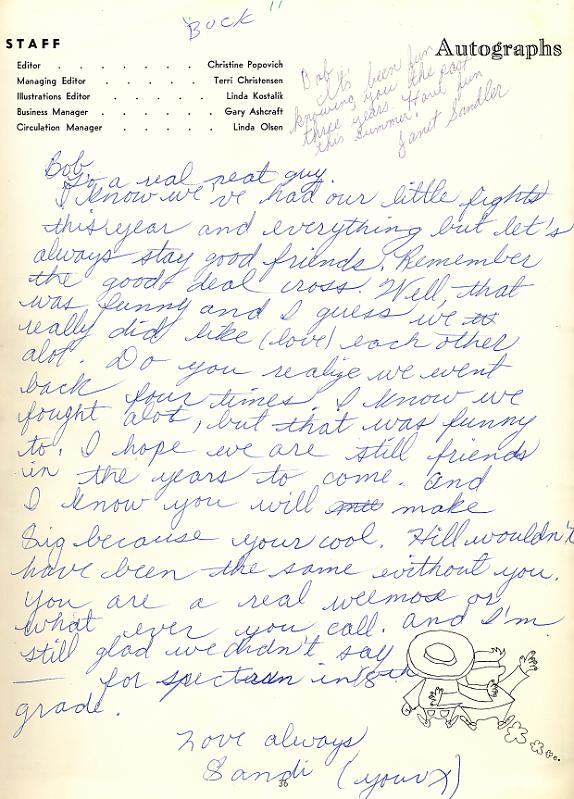 "Buck"
STAFF
Editor . . . . . . . Christine Popovich
Managing Editor . . . . . Terri Christensen
Illustrations Editor . . . . . Linda Kostalik
Business Manager . . . . . Gary Ashcraft
Circulation Manager . . . . . Linda Olsen
Autographs
Bob,
It's been fun
knowing you the past
three years. Have fun
this summer.
Janet Sandler
Bob,
To a real neat guy.
I know we've had our little fights
this year and everything but let's
always stay good friends. Remember
the good deal cross. Well, that
was funny and I guess we
really did like (love) each other
alot. Do you realize we went
back four times. I know we
fought alot, but that was funny
to. I hope we are still friends
in the years to come. and
I know you will make
big because your cool. Hill wouldn't
have been the same without you.
You are a real or
what ever you call. and I'm
still glad we didn't say
— for in 8th
grade.
Love always
Sandi (your X)
36